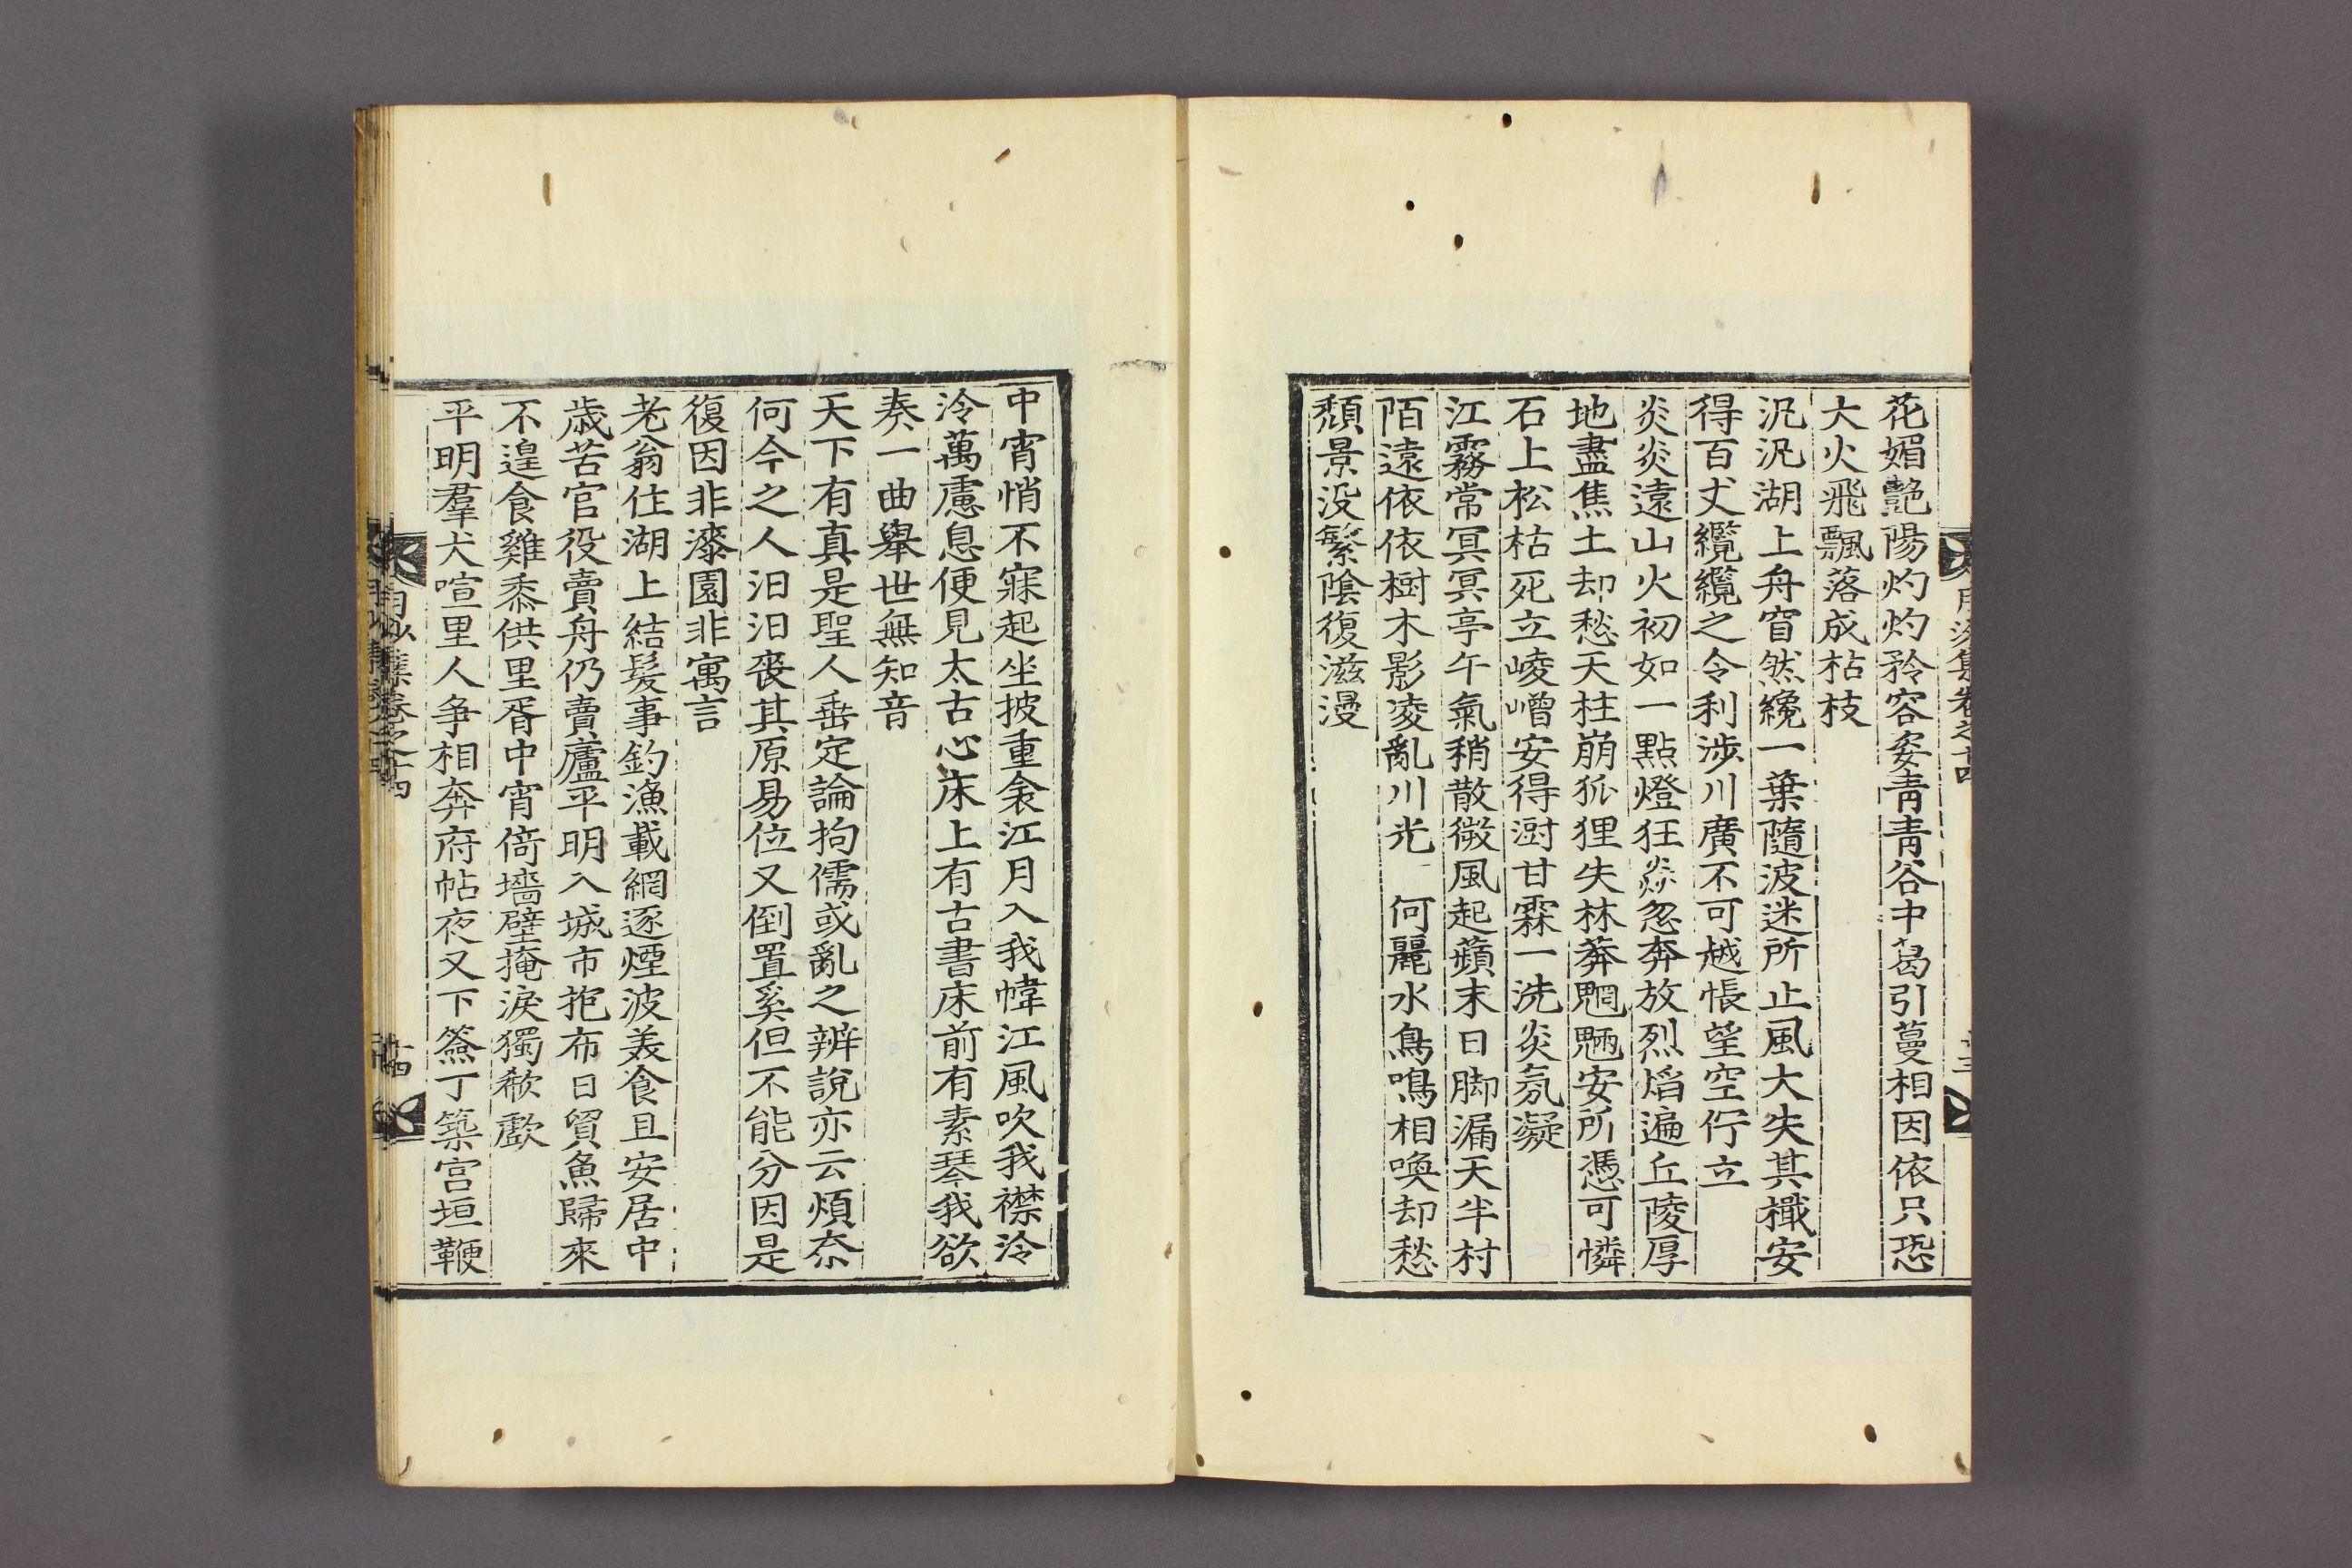 花媚艶陽灼灼矜容姿靑靑谷中葛引蔓相因依只恐
大火飛飄落成枯枝
汎汎湖上舟窅然纔一葉隨波迷所止風大失其檝安
得百丈纜纜之令利涉川廣不可越悵望空佇立
炎炎遠山火初如一點燈狂焱忽奔放烈焰遍丘陵厚
地盡焦土却愁天柱崩狐狸失林莽魍魎安所憑可憐
石上松枯死立崚嶒安得澍甘霖一洗炎氛凝
江霧常冥冥亭午氣稍散微風起蘋末日脚漏天半村
陌遠依依樹木影凌亂川光 何麗水鳥鳴相喚却愁
頽景没繁陰復滋漫
中宵悄不寐起坐披重衾江月入我幃江風吹我襟泠
泠萬慮息便見太古心床上有古書床前有素琴我欲
奏一曲擧世無知音
天下有真是聖人垂定論拘儒或亂之辨說亦云煩奈
何今之人汨汨喪其原易位又倒置奚但不能分因是
復因非漆園非寓言
老翁住湖上結髮事釣漁載網逐煙波美食且安居中
歲苦官役賣舟仍賣廬平明入城市抱布日貿魚歸來
不遑食雞黍供里胥中宵倚墻壁掩淚獨欷歔
平明羣犬喧里人爭相奔府帖夜又下簽丁築宮垣鞭
月沙集卷之十四
十四